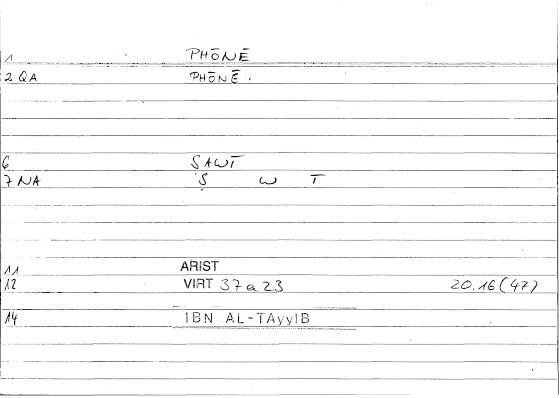 1 PHŌNĒ
2 QA PHŌNĒ.
6 ṢAWT
7 NA Ṣ W T
11 ARIST
12 VIRT 37a23 20.16(47)
14 IBN AL-TAyyIB